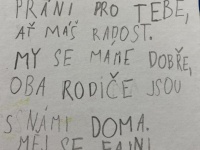 PŘÁNÍ PRO TEBE,
AŤ MÁŠ RADOST.
MY SE MÁME DOBŘE,
OBA RODIČE JSOU
S NÁMI DOMA.
MĚJ SE FAJNI